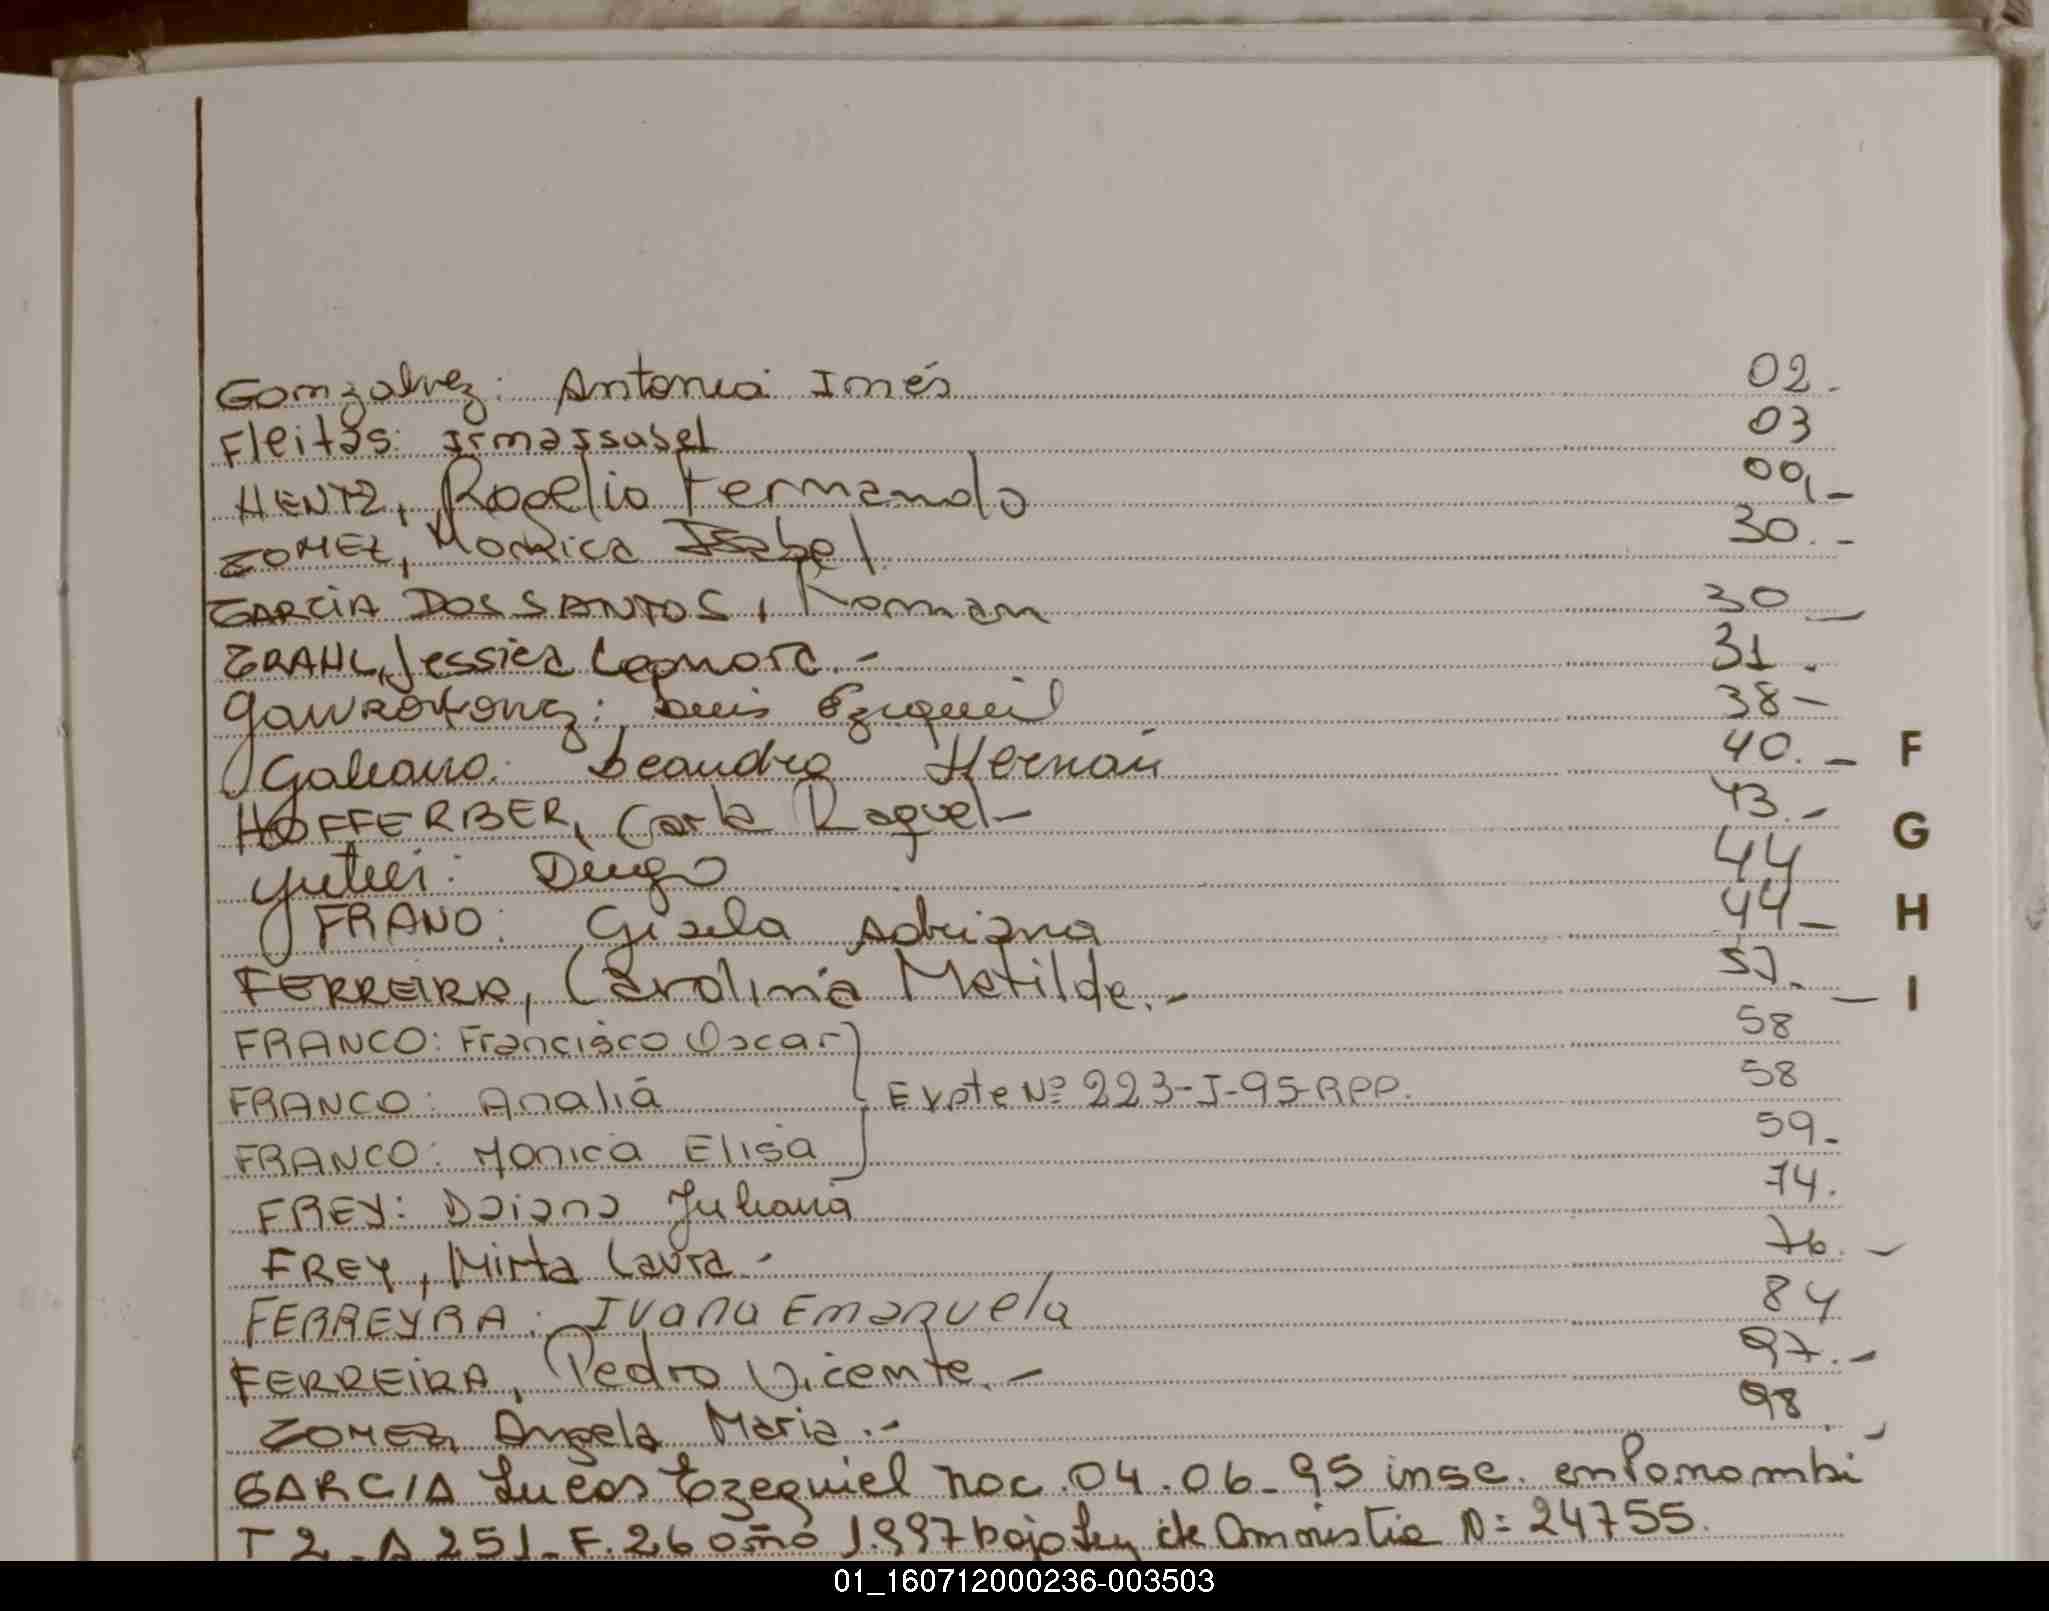 Gonzalvez: Antonia Inés 02.
Fleitas: Irma Issabel 03
HENTZ, Rogelio Fernando 00,-
GOMEZ, Monica Isabel 30.-
GARCIA DOS SANTOS, Roman 30 -
GRAHL, Jessica Leonora.- 31.
Luis Ezequiel 38-
Galeano: Leandro Hernán 40.-
HOFFERBER, Carla Raquel- 43.-
Diego 44
FRANO: Gisela Adriana 44-
FERREIRA, Carolina Matilde.- 57.-
FRANCO: Francisco Oscar 58
FRANCO: Analia Expte Nº 223-J-95-RPP. 58
FRANCO: Monica Elisa 59-
FREY: Daiana Juliana 74.
FREY, Mirta Laura- 76.-
FERREYRA: Ivana Emanuela 84
FERREIRA, Pedro Vicente.- 97.-
GOMEZ, Angela Maria.- 98.-
GARCIA Lucas Ezequiel nac. 04.06-95 insc. en Panambi
T 2-A 251-F.26 año 1.997 bajo Ley de Amnistia N= 24755.
F
G
H
I
01_160712000236-003503